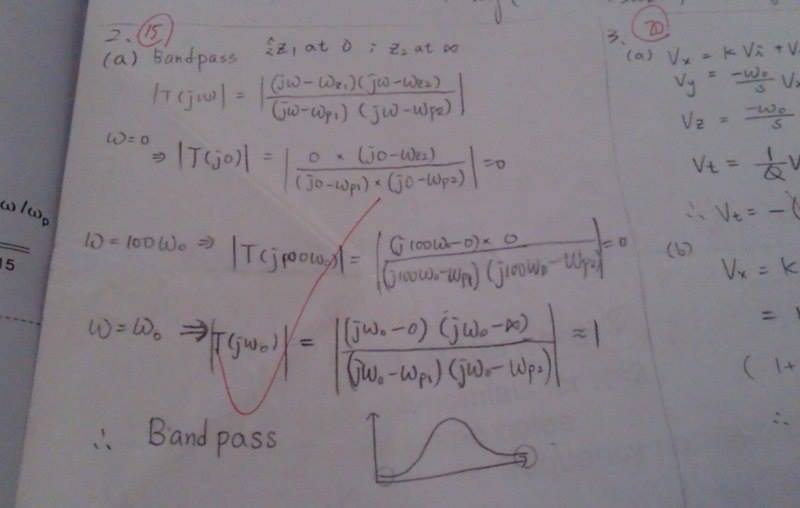 2. 15
(a) Bandpass z₁ at 0 ; z₂ at ∞
|T(jω)| = |(jω-ωz₁)(jω-ωz₂) / (jω-ωp₁)(jω-ωp₂)|
ω=0
⇒ |T(j0)| = |0 × (j0-ωz₂) / (j0-ωp₁)×(j0-ωp₂)| = 0
ω=100ω₀ ⇒ |T(j100ω₀)| = |(j100ω₀-0)×0 / (j100ω₀-ωp₁)(j100ω₀-ωp₂)| = 0
ω=ω₀ ⇒ |T(jω₀)| = |(jω₀-0)(jω₀-∞) / (jω₀-ωp₁)(jω₀-ωp₂)| ≈ 1
∴ Bandpass
3. 20
(a) Vx = K Vi +
Vy = -ω₀/s Vx
Vz = -ω₀/s
Vt = 1/Q V
∴ Vt = -(
(b)
Vx = K
=
( 1+
∴
ω/ωp
15